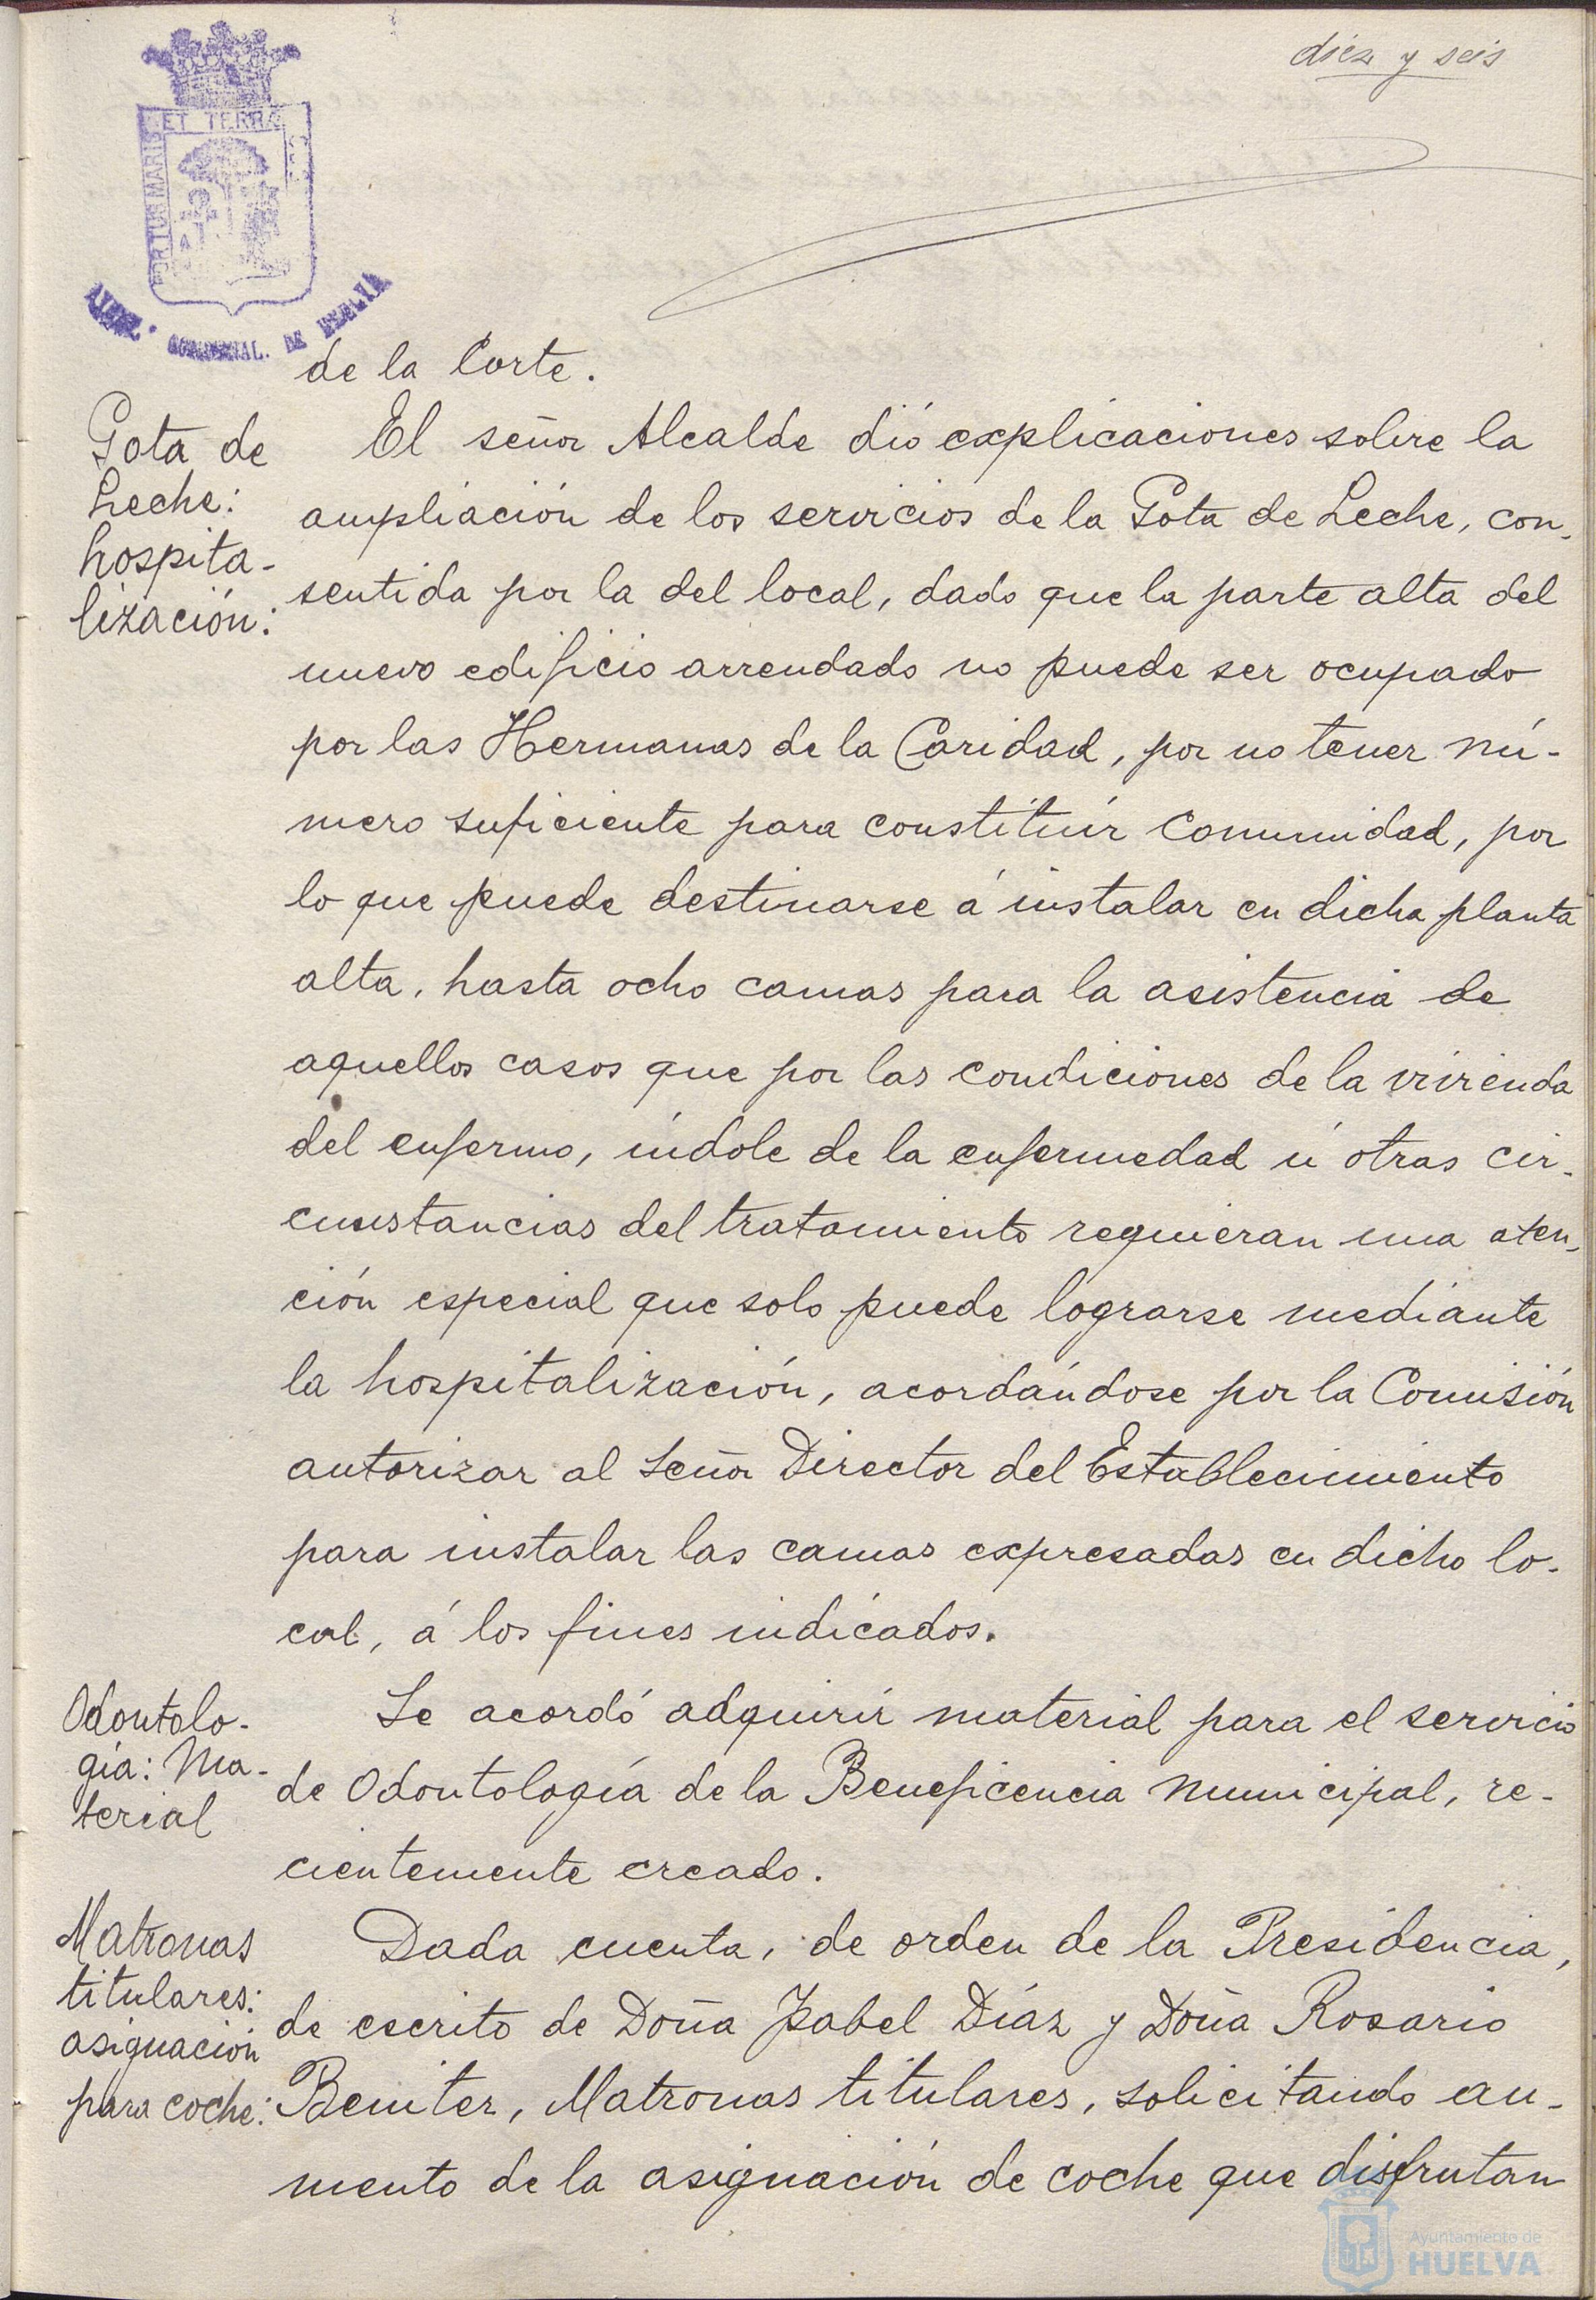 diez y seis
ET TERRÆ
PORTUS MARIS
DE HUELVA
de la Corte.
Gota de
Leche:
hospita-
lización:
El señor Alcalde dió explicaciones sobre la
ampliación de los servicios de la Gota de Leche, con-
sentida por la del local, dado que la parte alta del
nuevo edificio arrendado no puede ser ocupado
por las Hermanas de la Caridad, por no tener nú-
mero suficiente para constituír Comunidad, por
lo que puede destinarse á instalar en dicha planta
alta, hasta ocho camas para la asistencia de
aquellos casos que por las condiciones de la vivienda
del enfermo, índole de la enfermedad ú otras cir-
cunstancias del tratamiento requieran una aten-
ción especial que solo puede lograrse mediante
la hospitalización, acordándose por la Comisión
autorizar al Señor Director del Establecimiento
para instalar las camas expresadas en dicho lo-
cal, á los fines indicados.
Odontolo-
gía: Ma-
terial
Se acordó adquirir material para el servicio
de Odontología de la Beneficencia Municipal, re-
cientemente creado.
Matronas
titulares:
asignación
para coche:
Dada cuenta, de orden de la Presidencia,
de escrito de Doña Isabel Díaz y Doña Rosario
Benitez, Matronas titulares, solicitando au-
mento de la asignación de coche que disfrutan
Ayuntamiento de
HUELVA